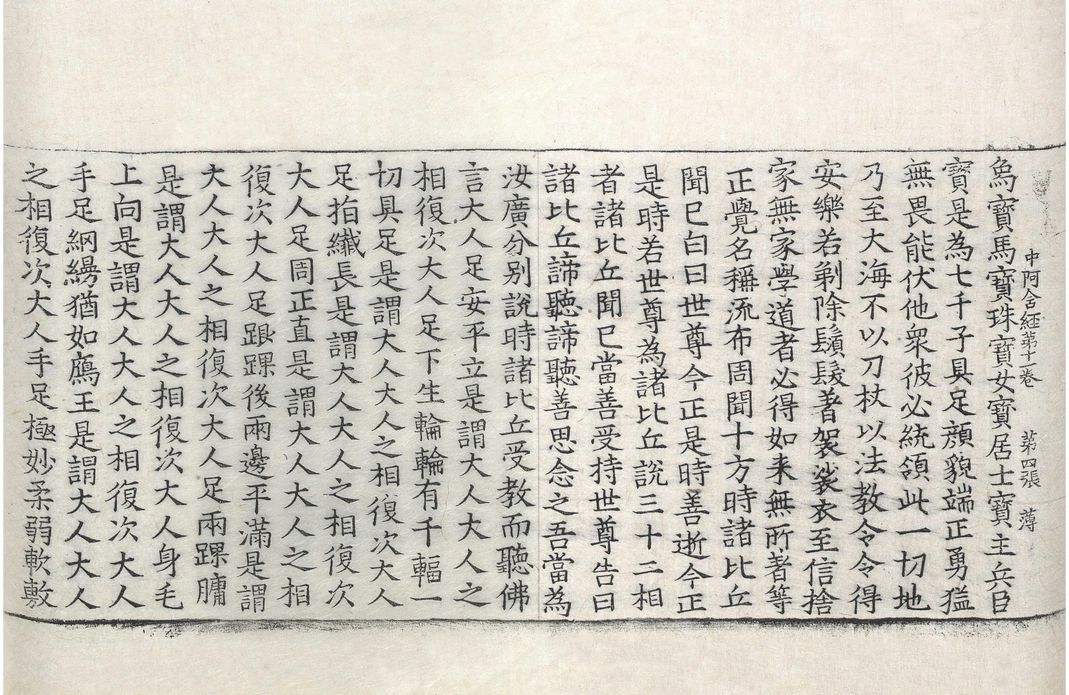 中阿含経第十卷　第四張　薄
為寶馬寶珠寶女寶居士寶主兵臣
寶是為七千子具足顔貌端正勇猛
無畏能伏他衆彼必統領此一切地
乃至大海不以刀杖以法教令令得
安樂若剃除鬚髮著袈裟衣至信捨
家無家學道者必得如来無所著等
正覺名稱流布周聞十方時諸比丘
聞已白曰世尊今正是時善逝今正
是時若世尊為諸比丘說三十二相
者諸比丘聞已當善受持世尊告曰
諸比丘諦聽諦聽善思念之吾當為
汝廣分别說時諸比丘受教而聽佛
言大人足安平立是謂大人大人之
相復次大人足下生輪輪有千輻一
切具足是謂大人大人之相復次大人
足指纖長是謂大人大人之相復次
大人足周正直是謂大人大人之相
復次大人足跟踝後兩邊平滿是謂
大人大人之相復次大人足兩踝𦟛
是謂大人大人之相復次大人身毛
上向是謂大人大人之相復次大人
手足網縵猶如鴈王是謂大人大人
之相復次大人手足極妙柔弱軟敷